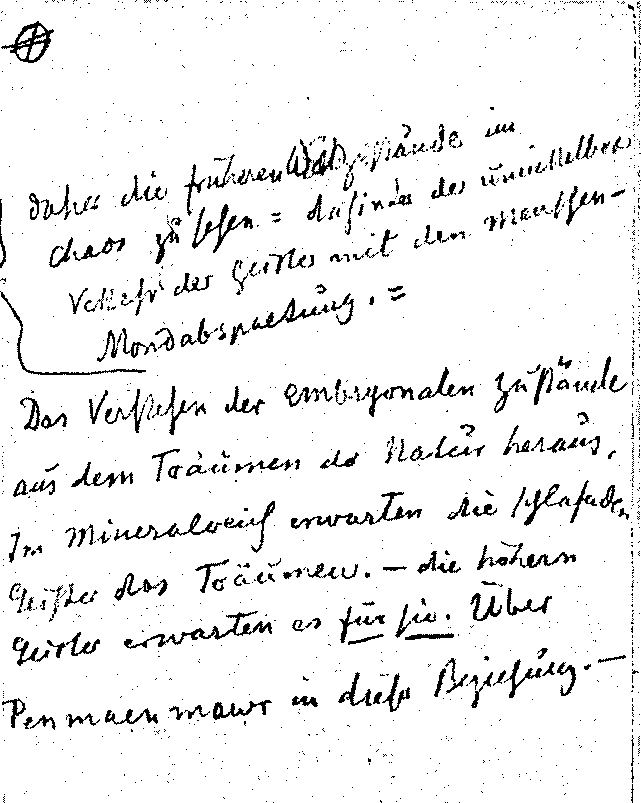 daher die früheren Weltzustände im
Chaos zu sehen = darinnen der unmittelbare
Verkehr der Geister mit den Menschen -
Mondabspaltung. =
Das Verstehen der embryonalen Zustände
aus dem Träumen der Natur heraus.
Im Mineralreich erwarten die schlafenden
Geister das Träumen. — die höhern
Geister erwarten es für sie. Über
Penmaenmawr in dieser Beziehung. —